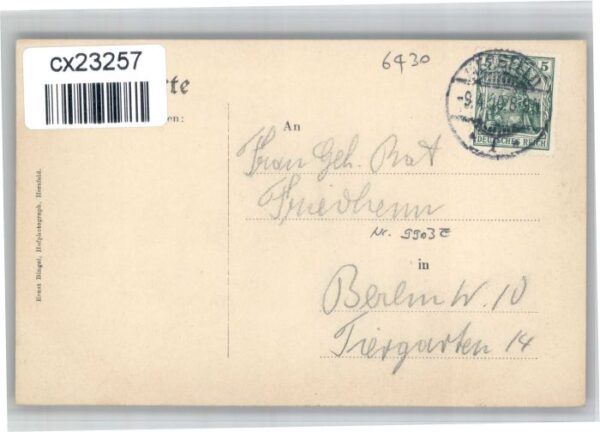 cx23257
6430
rte
en:
HERSFELD
-9.4.10.8-9
1
5
DEUTSCHES REICH
An
Frau Geh. Rat
Friedheim
Nr. 9903E
in
Berlin W. 10
Tiergarten 14
Ernst Bingel, Hofphotograph, Hersfeld.